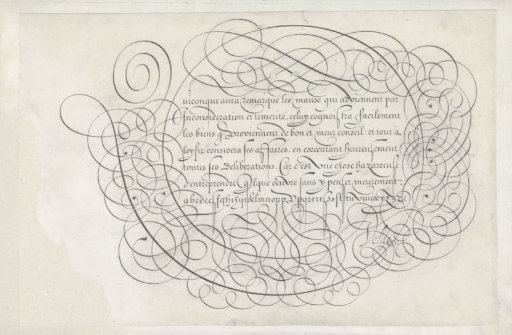 urconque aura remarqué les maux qui adviennent par
Inconsideration et temerité, celuy cognoistra facilement
les biens q̃ proviennent de bon et meur conseil: et tout a
loysir consultera ses affaires, en executant heureusement
toutes ses Deliberations. Car c'est une chose hazardeuse
d'entreprendre q̃lque oeuvre sans y penser meurement: